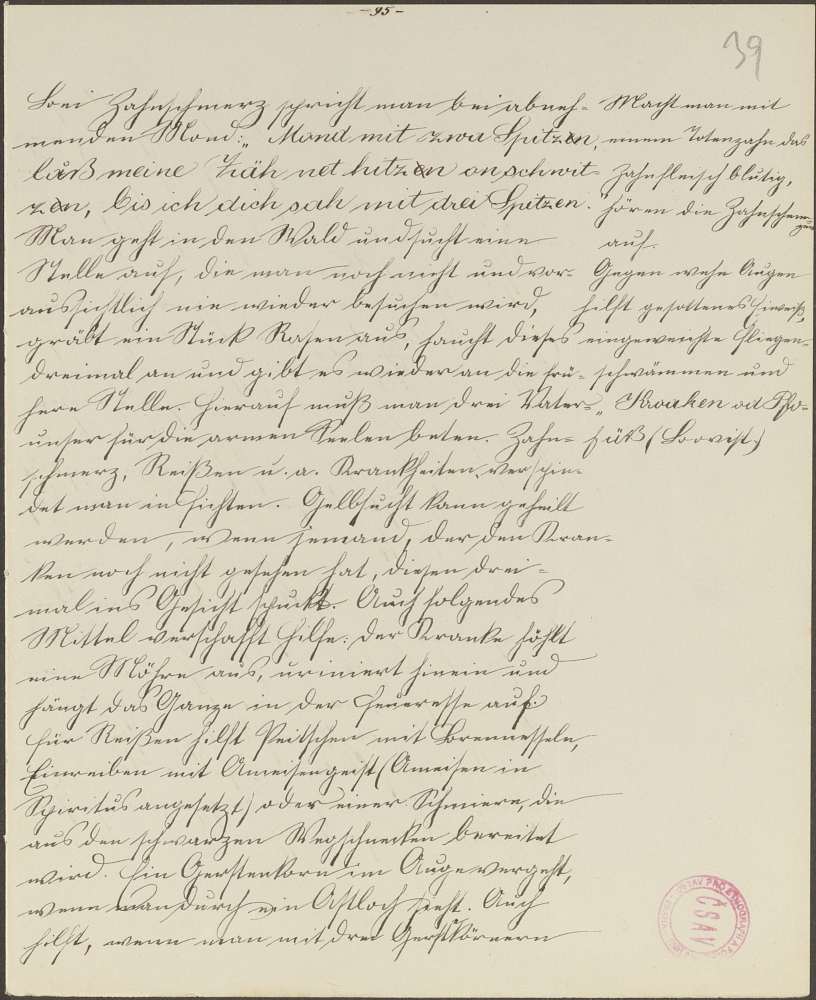 - 95 -
39
Bei Zahnschmerz spricht man bei abneh-
menden Mond: „Mond mit zwa Spitzen,
laß meine Zäh net hitzen on schwit-
zen, bis ich dich sah mit drei Spitzen."
Man geht in den Wald und sucht eine
Stelle auf, die man noch nicht und vor-
aussichtlich nie wieder besuchen wird,
gräbt ein Stück Rasen aus, haucht dieses
dreimal an und gibt es wieder an die frü-
here Stelle. Hierauf muß man drei Vater-
unser für die armen Seelen beten. Zahn-
schmerz, Reißen u. a. Krankheiten verspin-
det man in Fichten. Gelbsucht kann geheilt
werden, wenn jemand, der den Kran-
ken noch nicht gesehen hat, diesen drei-
mal ins Gesicht spuckt. Auch folgendes
Mittel verschafft Hilfe: Der Kranke höhlt
eine Möhre aus, uriniert hinein und
hängt das Ganze in der Feueresse auf.
Für Reißen hilft Peitschen mit Brennesseln,
Einreiben mit Ameisengeist (Ameisen in
Spiritus angesetzt) oder einer Schmiere, die
aus den schwarzen Wegschnecken bereitet
wird. Ein Gerstenkorn im Auge vergeht,
wenn man durch ein Astloch sieht. Auch
hilft, wenn man mit drei Gerstkörnern
Macht man mit
einem Totenzahn das
Zahnfleisch blutig,
hören die Zahnschmerzen
auf.
Gegen wehe Augen
hilft gesottenes Eiweiß,
eingeweichte Fliegen-
schwämmen und
„Kroaken od Pfo-
füß (Bovist)
ČSAV